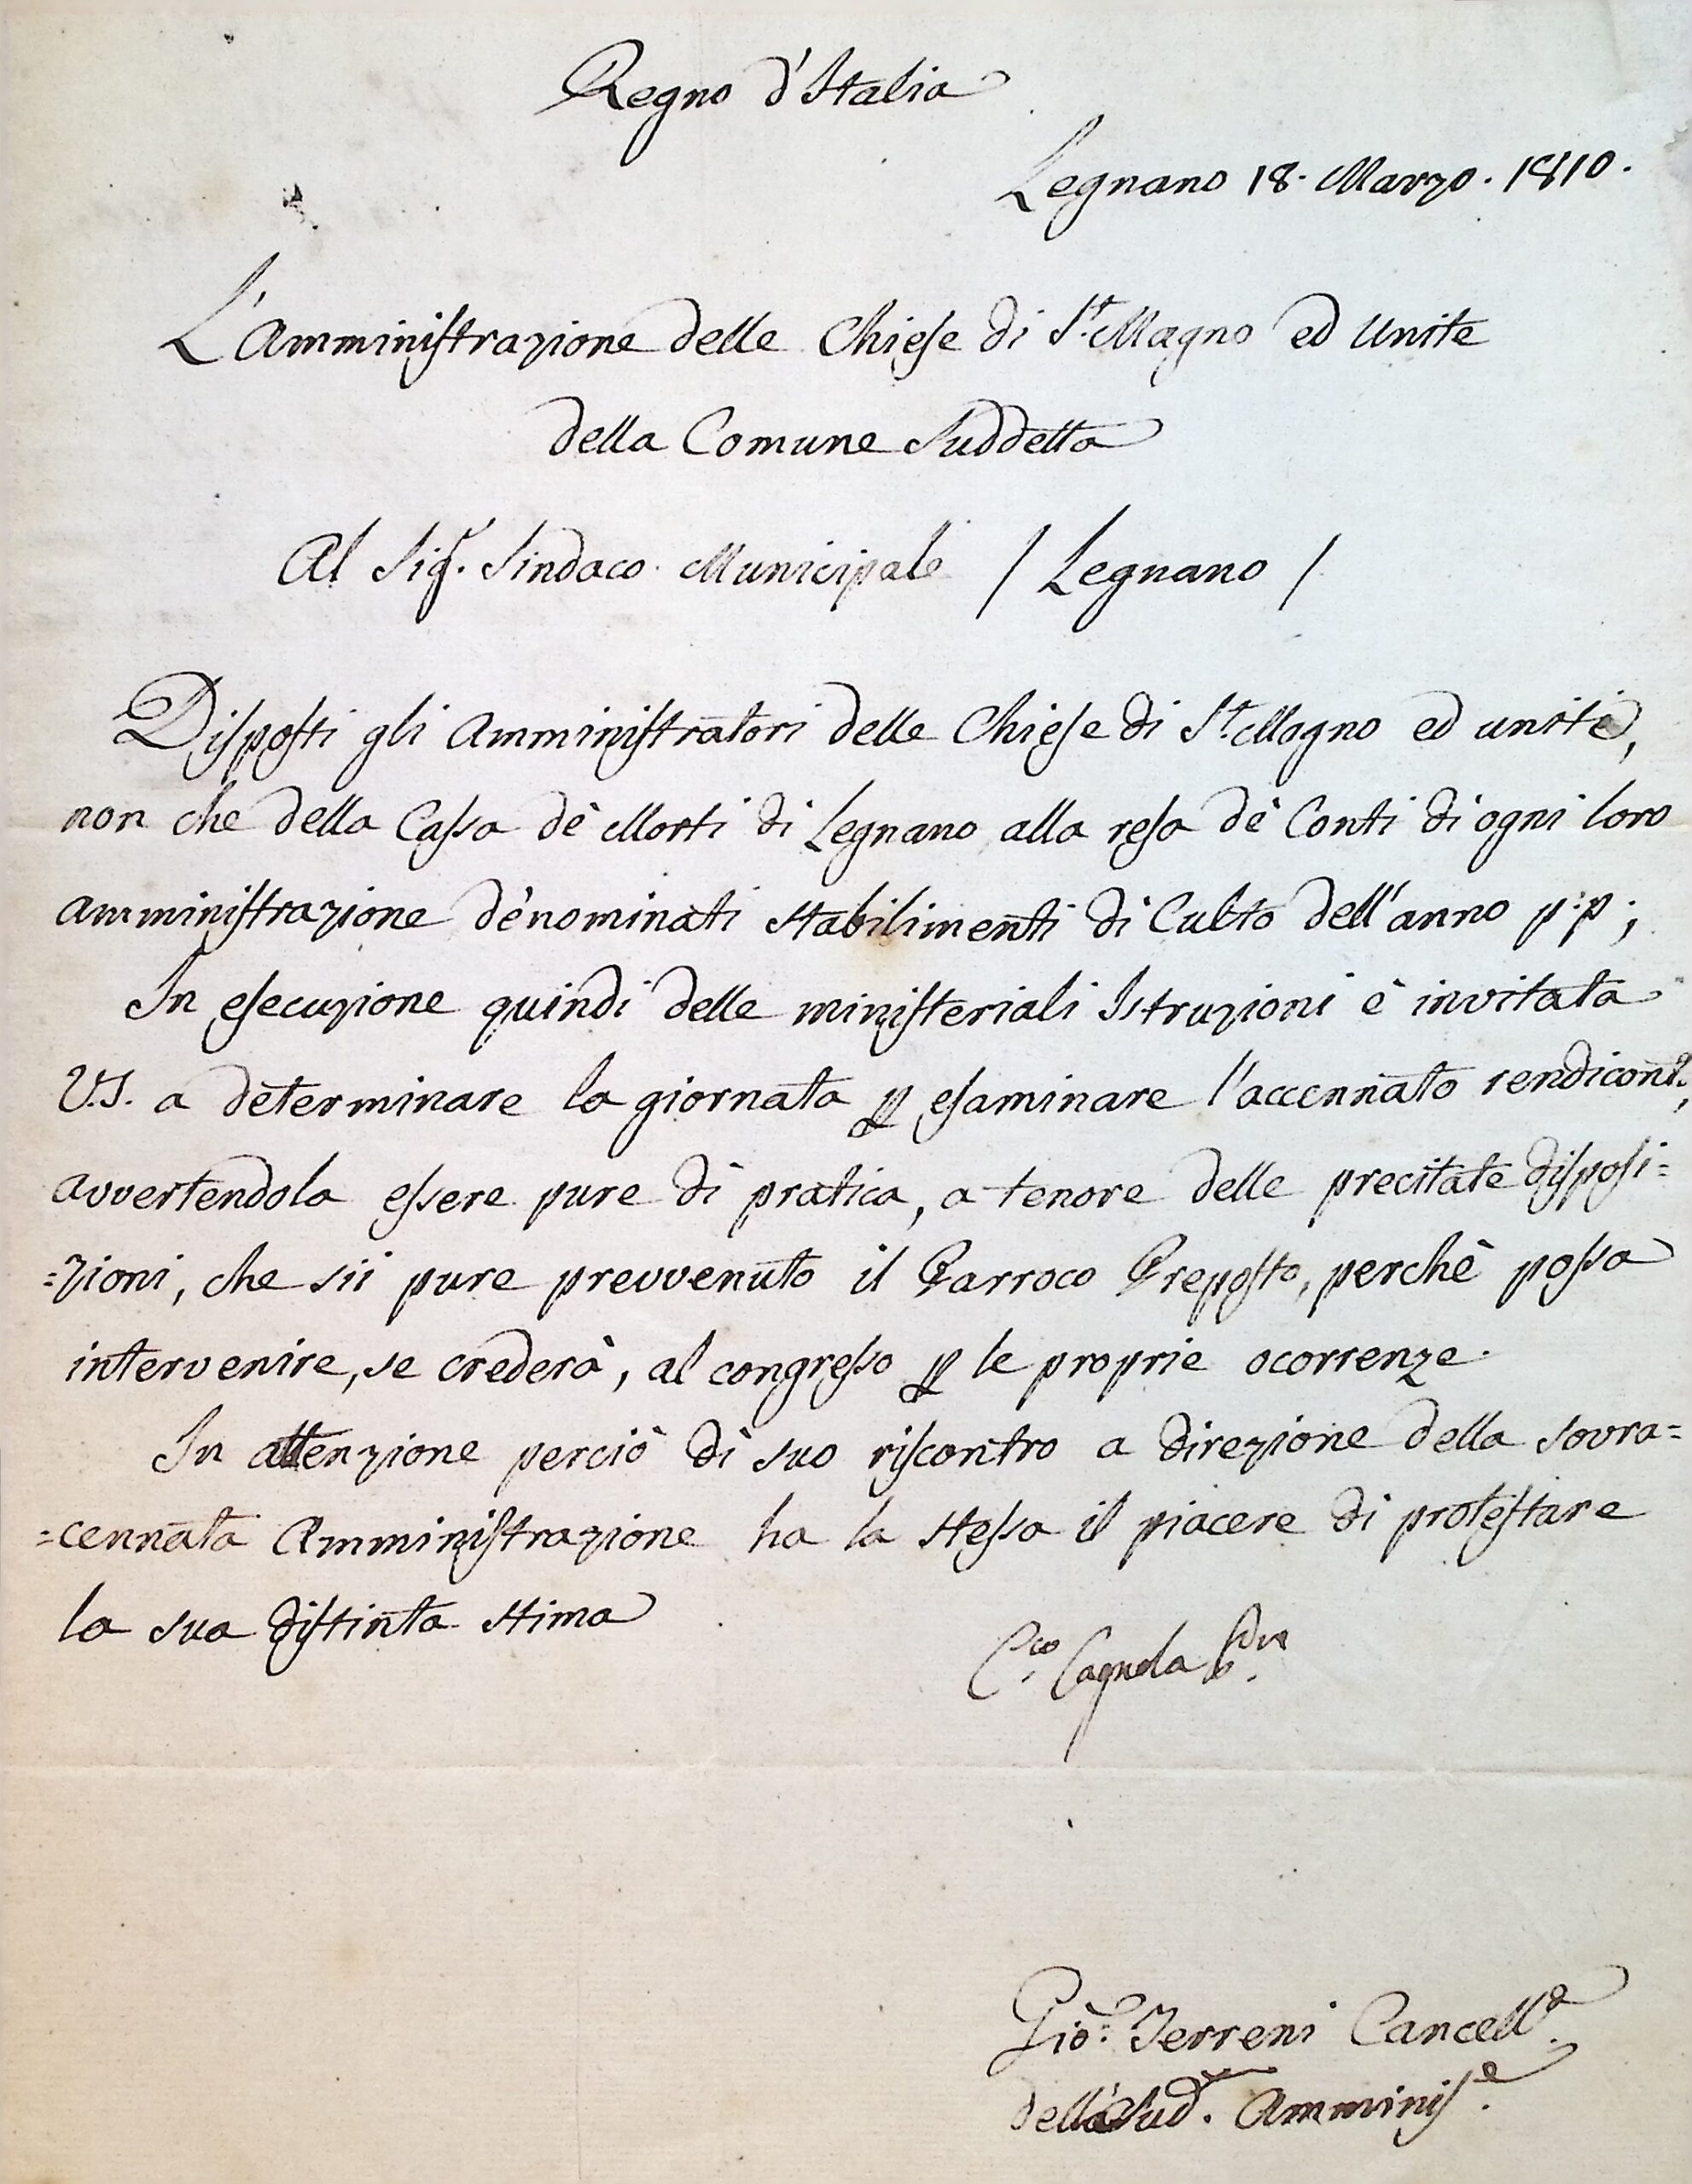 Regno d'Italia
Legnano 18. Marzo. 1810.
L'Amministrazione delle Chiese di S.t Magno ed Unite
della Comune Suddetta
Al Sig.r Sindaco Municipale / Legnano /
Disposti gli Amministratori delle Chiese di S.t Magno ed unite,
non che della Cassa dè Morti di Legnano alla resa dè Conti di ogni loro
amministrazione dè nominati stabilimenti di Culto dell'anno p:p;
In esecuzione quindi delle ministeriali Istruzioni è invitata
V.S. a determinare la giornata p esaminare l'accennato rendicont.,
avvertendola essere pure di pratica, a tenore delle precitate disposi=
=zioni, che sii pure prevvenuto il Parroco Preposto, perchè possa
intervenire, se crederà, al congresso p le proprie ocorrenze.
In attenzione perciò di suo riscontro a direzione della sovra=
=cennata Amministrazione ha la stessa il piacere di protestare
la sua distinta stima
Cagnola
Gio. Terreni Cancell.e
della Sud.a Amminis.e